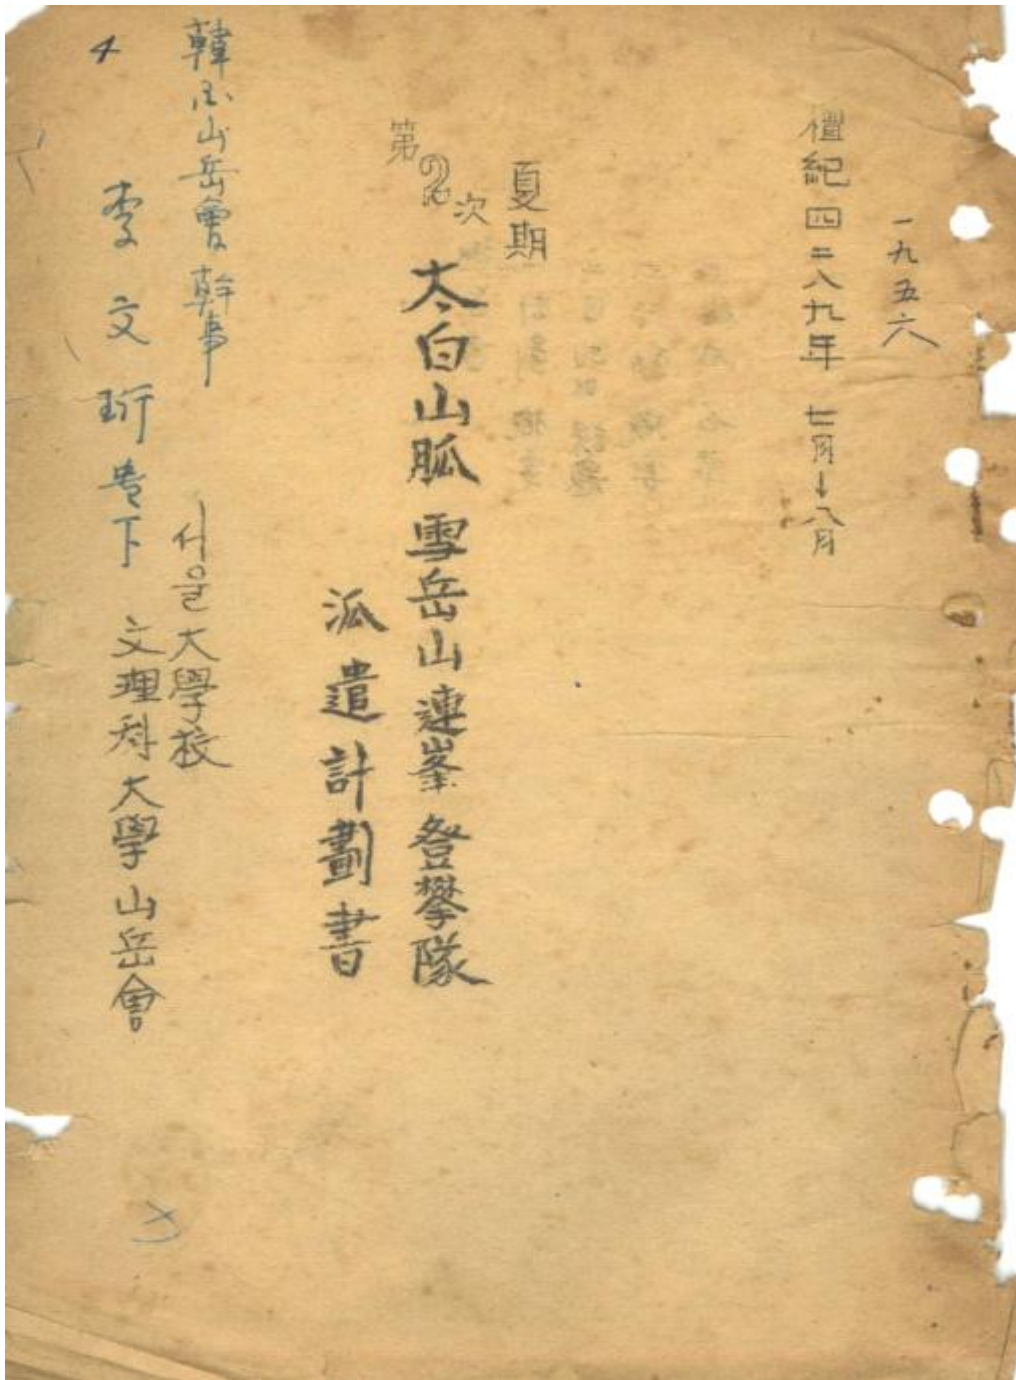 一九五六
檀紀四二八九年 七月→八月
夏期
第2次
太白山脈 雪岳山連峯登攀隊
派遣計劃書
서울大學校
文理科大學山岳會
韓国山岳會幹事
李文珩貴下
4